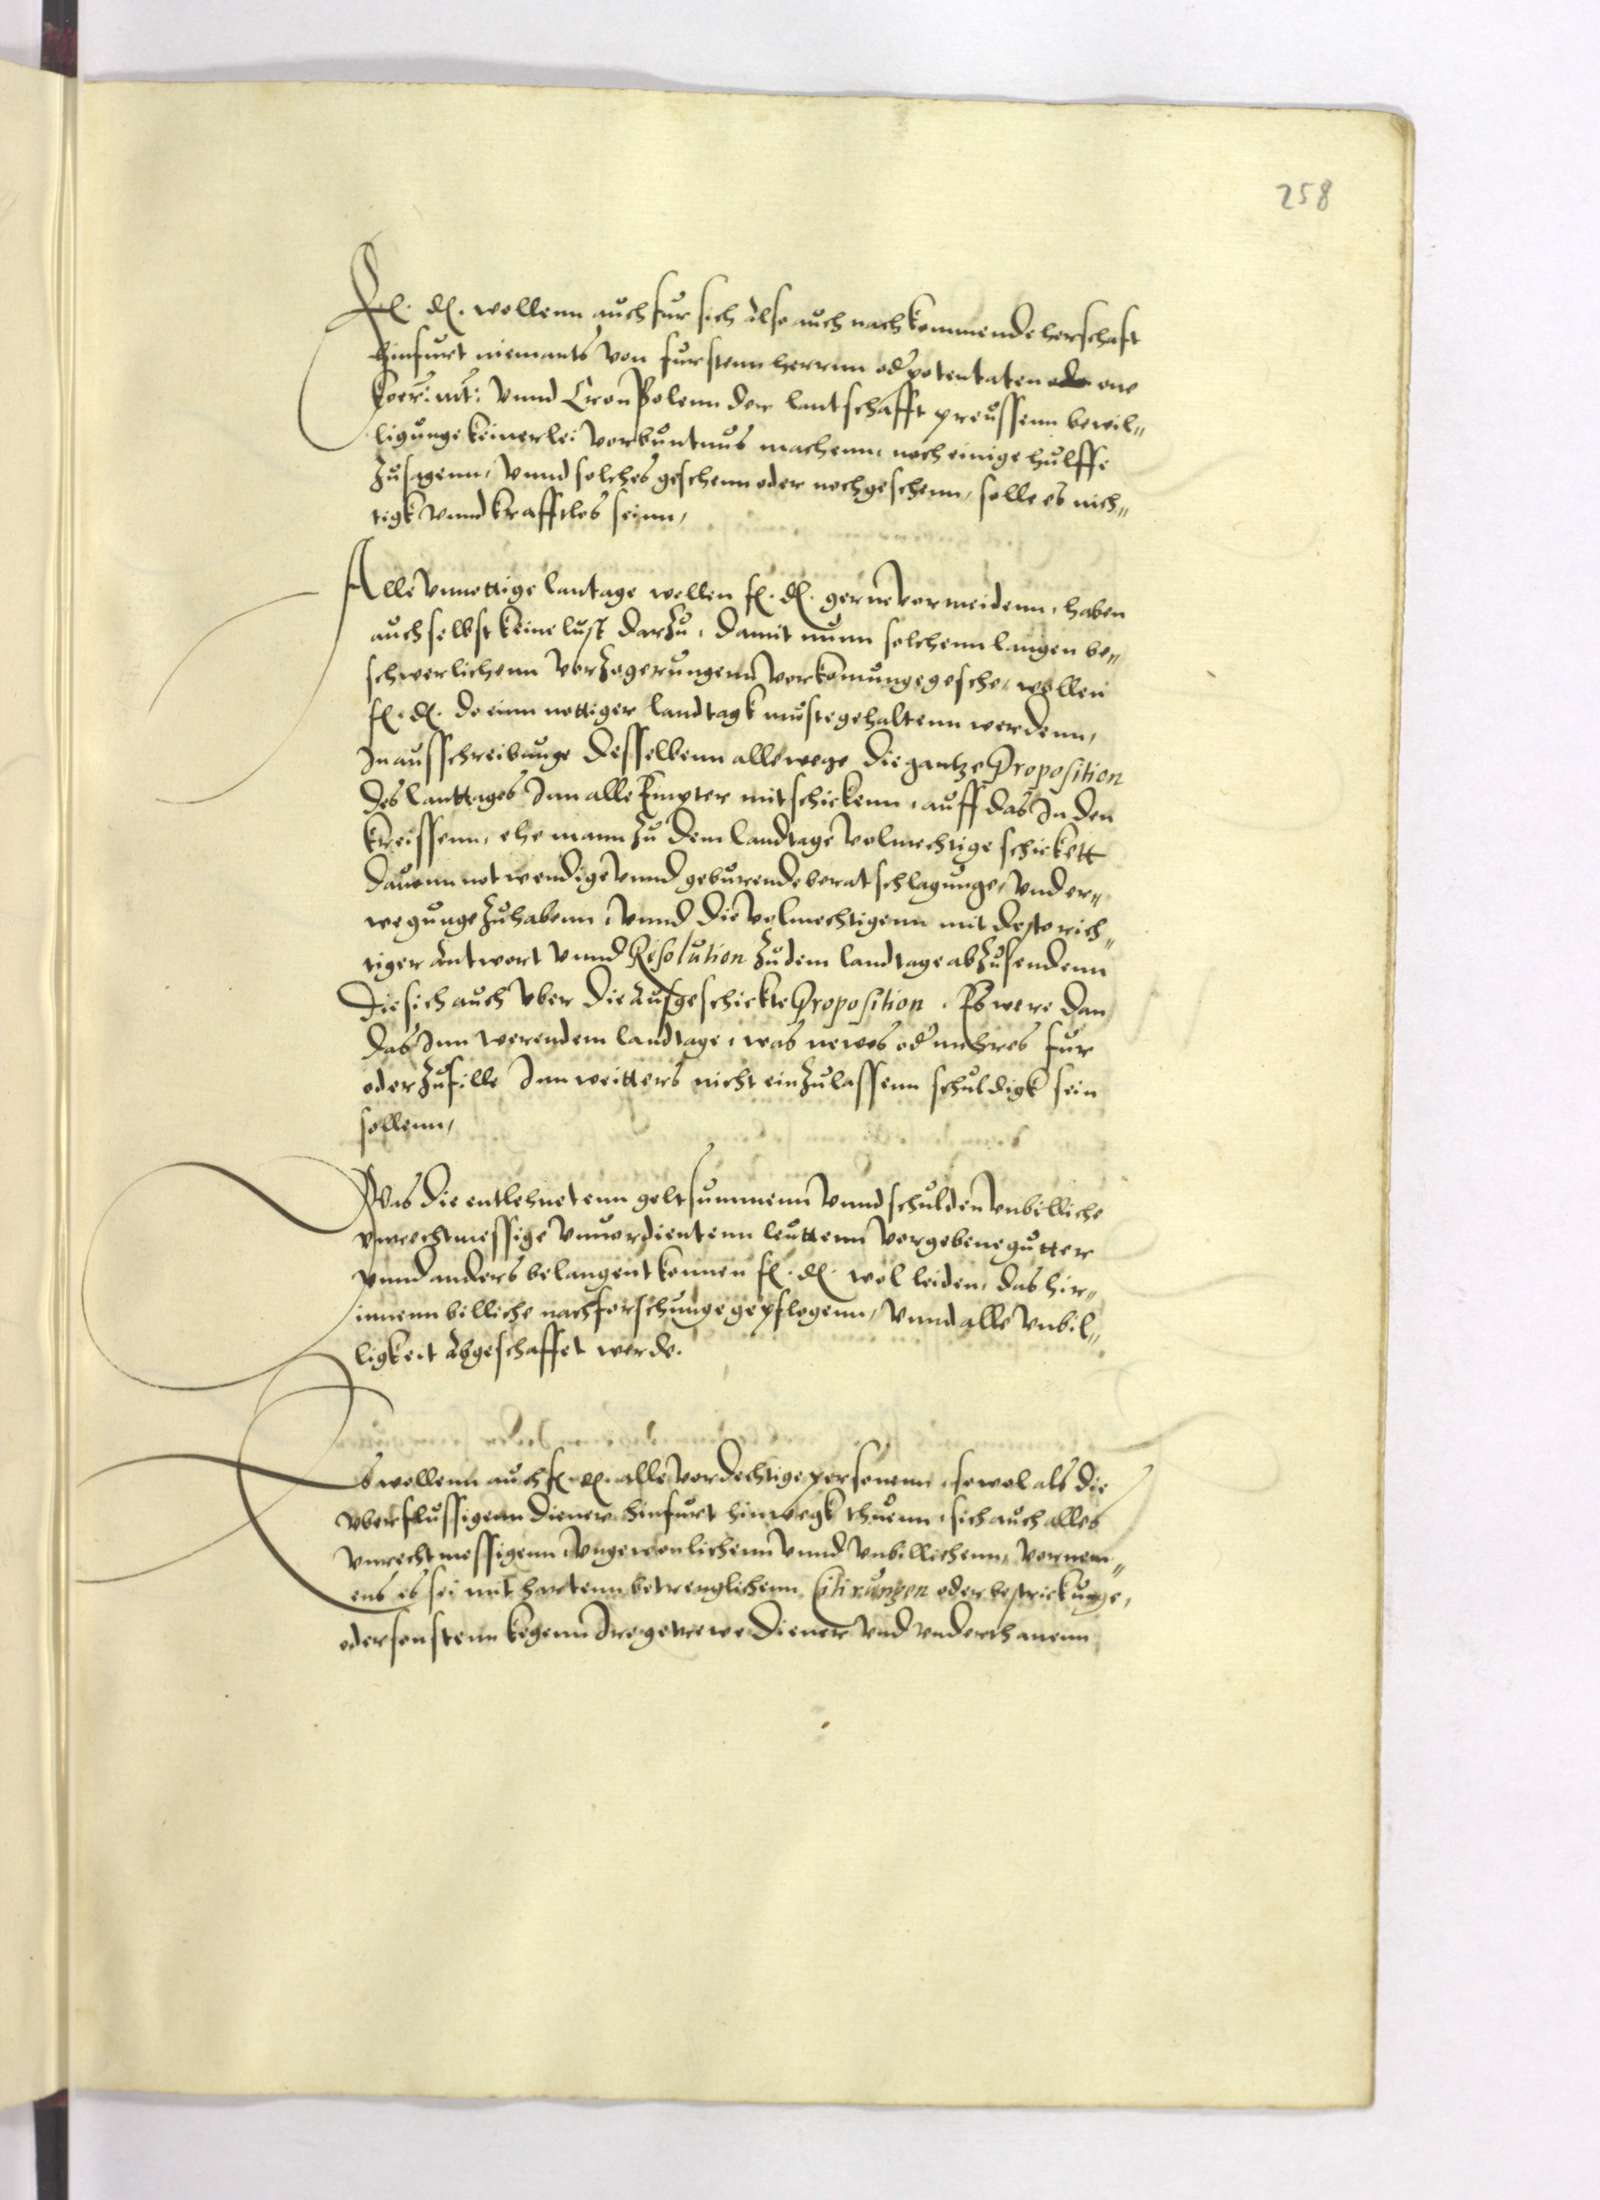 258
F. D. wollenn auch fur sich also auch nachkommende herschaft
hinfurt niemants von furstenn herrnn od potentaten one
Koer: mt: vnnd Cron Polenn der lantschafft preussenn bewil„
ligunge keinerlei vorbuntnus machenn, noch einige hulffe
zusagenn, vnnd solches geschenn oder nochgeschenn, solle es nich„
tigk vnnd krafftlos seinn,
Alle vnnottige lantage wollen f. d. gerne vormeidenn, haben
auch selbst keine lust darzu, damit nunn solchenn langen be„
schwerlichenn vorzogerungenn vorkomunge geschee, wollen
f. d. do einn nottiger landtagk muste gehaltenn werdenn,
In ausschreibunge desselbenn allewege die gantze Proposition
des lanttages Inn alle Empter mitschickenn, auff das In den
kreissenn, ehe mann zu dem landtage volmechtige schickett
dauonn notwendige vnnd geburende beratschlagunge, vnd er„
wegunge zuhabenn, vnnd die volmechtigenn mit desto rich„
tiger antwort vnnd Resolution zu dem landtage abzusendenn
die sich auch vber die ausgeschickte Proposition. Es were dan
das Inn werendem landtage, was newes od mehres fur
oder zufille Inn weitters nicht einzulassenn schuldigk sein
sollenn,
Was die entlehnetenn geltsummenn vnnd schulden vnbilliche
vnrechtmessige vnuordientenn leuttenn vorgebene gutter
vnnd anders belangent konnen f. d. wol leiden, das hir„
innenn billiche nachforschunge gepflogenn, vnnd alle vnbil„
ligkeit abgeschaffet werde.
Es wollenn auch f. d. alle vordechtige personenn, sowol als die
vberflussigenn diener hinfurt hinwegk thuenn, sich auch alles
vnrechtmessigenn vngewonlichenn vnnd vnbillichenn, vornem„
ens es sei mit hartenn betrenglichenn Citirungen oder bestrickunge,
oder sonstenn kegenn Ire getrewe diener vnd vnderthanenn